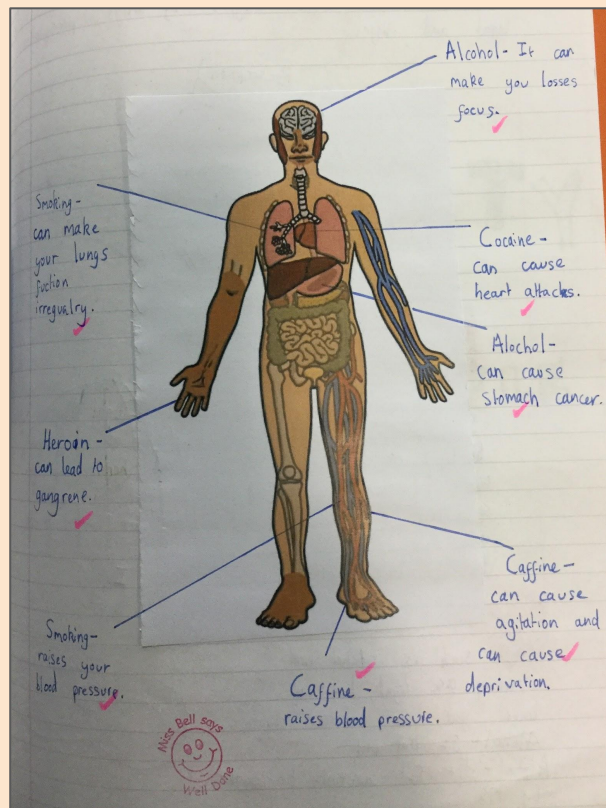 Alcohol- It can
make you losses
focus.
Smoking-
can make
your lungs
fuction
irregualry.
Cocaine-
can cause
heart attacks.
Alochol-
can cause
stomach cancer.
Heroin-
can lead to
gangrene.
Caffine-
can cause
agitation and
can cause
deprivation.
Smoking-
raises your
blood pressure.
Caffine-
raises blood pressure.
Miss Bell says
Well Done